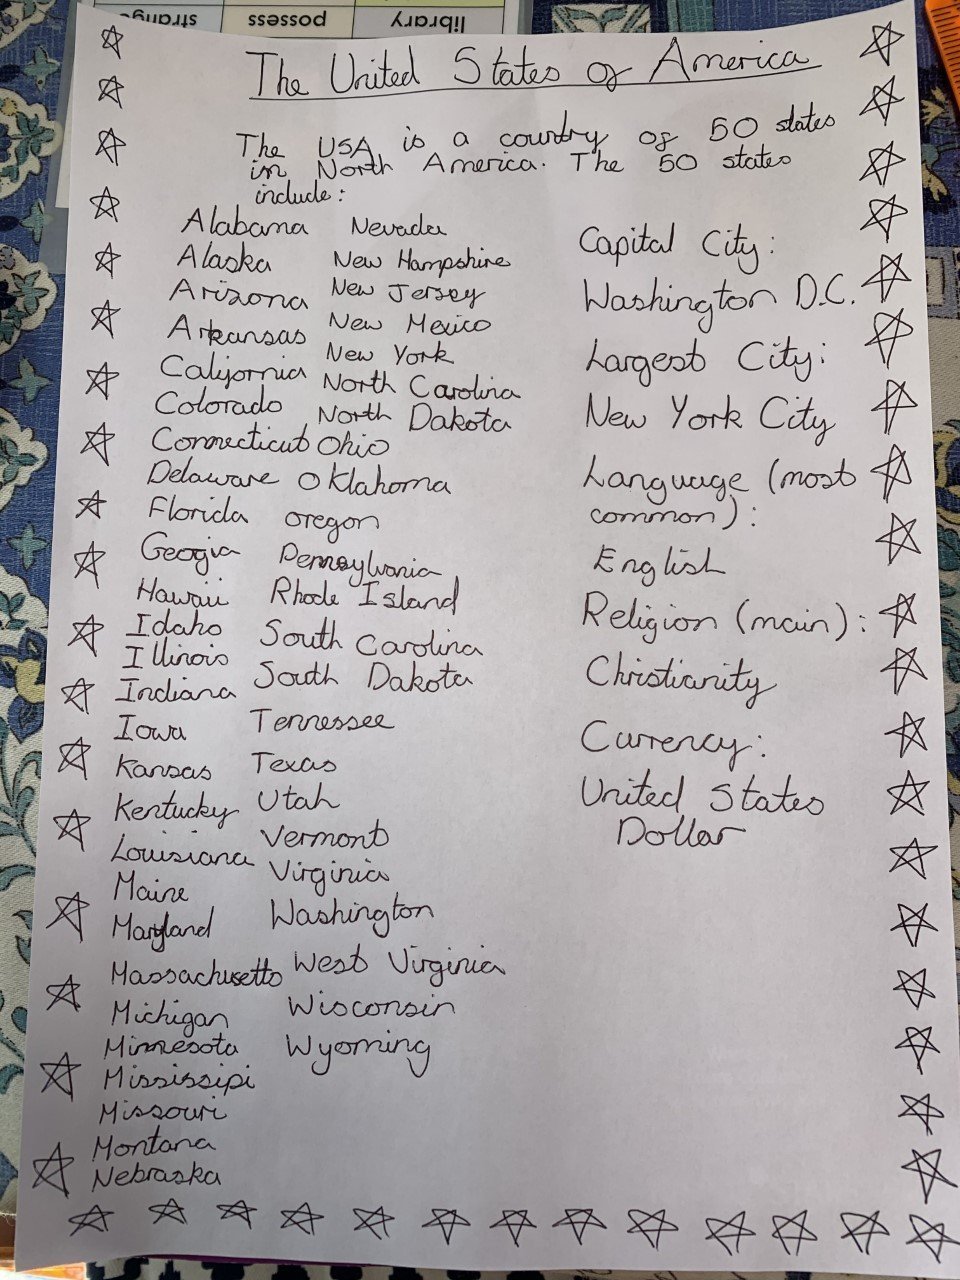 library
possess
strange
The United States of America
The USA is a country of 50 states
in North America. The 50 states
include:
Alabama
Alaska
Arizona
Arkansas
California
Colorado
Connecticut
Delaware
Florida
Geogia
Hawaii
Idaho
Illinois
Indiana
Iowa
Kansas
Kentucky
Louisiana
Maine
Maryland
Massachusetts
Michigan
Minnesota
Mississipi
Missouri
Montana
Nebraska
Nevada
New Hampshire
New Jersey
New Mexico
New York
North Carolina
North Dakota
Ohio
Oklahoma
oregon
Pennsylvania
Rhode Island
South Carolina
South Dakota
Tennessee
Texas
Utah
Vermont
Virginia
Washington
West Virginia
Wisconsin
Wyoming
Capital City:
Washington D.C.
Largest City:
New York City
Language (most
common):
English
Religion (main):
Christianity
Currency:
United States
Dollar